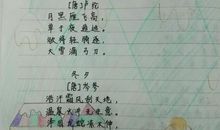 [唐]卢纶
月黑雁飞高,
单于夜遁逃。
欲将轻骑逐,
大雪满弓刀。
冬夕
[唐]岑参
浩汗霜风刮天地,
温泉火井无生意。
泽国龙蛇冻不伸,